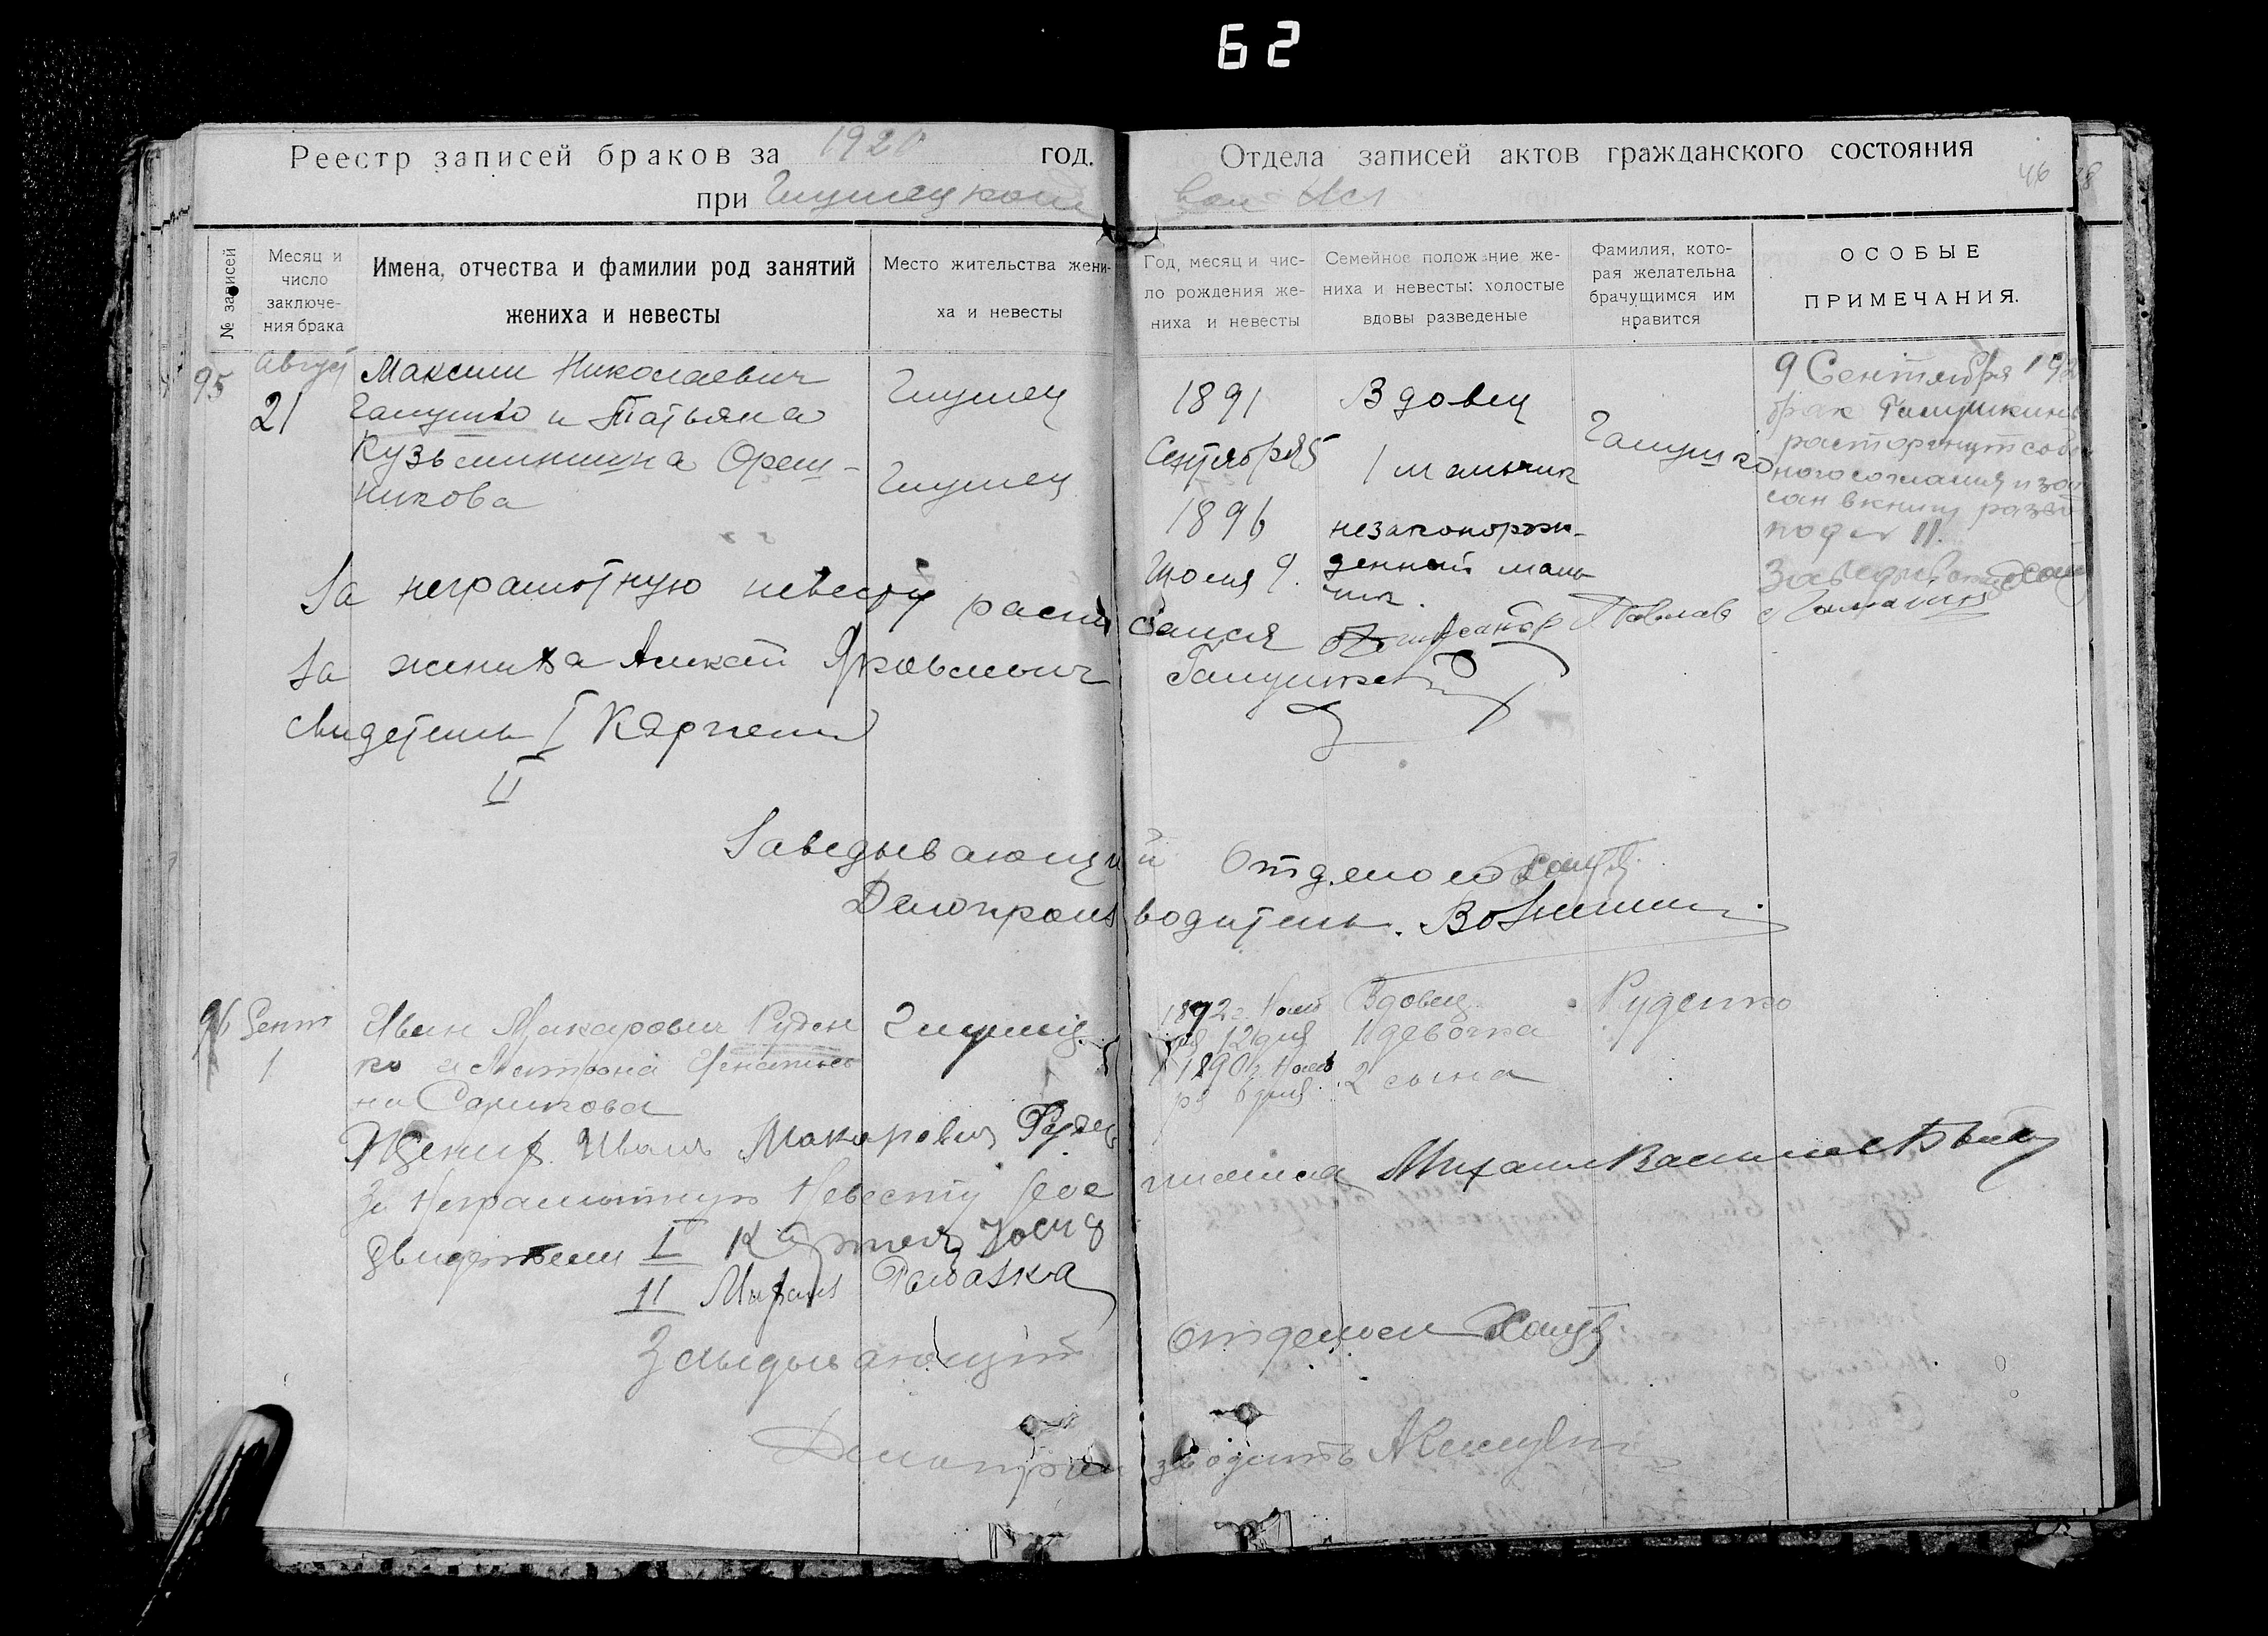 62
Реестр записей браков за 1920 год.
при Глушецком
Отдела записей актов гражданского состояния
вол Исп
46
№ записей
Месяц и число заключения брака
Имена, отчества и фамилии род занятий
жениха и невесты
Место жительства жени-
ха и невесты
Год, месяц и чис-
ло рождения же-
ниха и невесты
Семейное положение же-
ниха и невесты: холостые
вдовы разведеные
Фамилия, кото-
рая желательна
брачущимся им
нравится
ОСОБЫЕ
ПРИМЕЧАНИЯ.
95
Август
21
Максим Николаевич
Галушко и Татьяна
Кузьминишна Ореш-
никова
Глушец
Глушец
1891
Сентября 5
1896
Июля 9.
Вдовец
1 мальчик
незаконорож-
денный маль
чик.
Галушко
9 Сентября 192
брак Галушкиных
расторгнут
ного согласия и за
сан в книгу разво
под № 11.
За неграмотную невесту распи сался Александр Павлов
За жениха Яковлевич Галушко
свидетели I Карпенко
II
Заведывающий Отделом
Делопроизводитель.
96
Сент
1
Иван Макарович Руден
ко и Матрона Игнатьев
на Саликова
Глушец
1892 г. Нояб
ря 12 дня
1890 г. Нояб
ря 6 дня
Вдовец
1 девочка
2 сына
Руденко
Жених Иван Макарович Руден
За Неграмотную Невесту Михаил
Свидетели I
II
Заведывающий отделом
Делопроизводитель